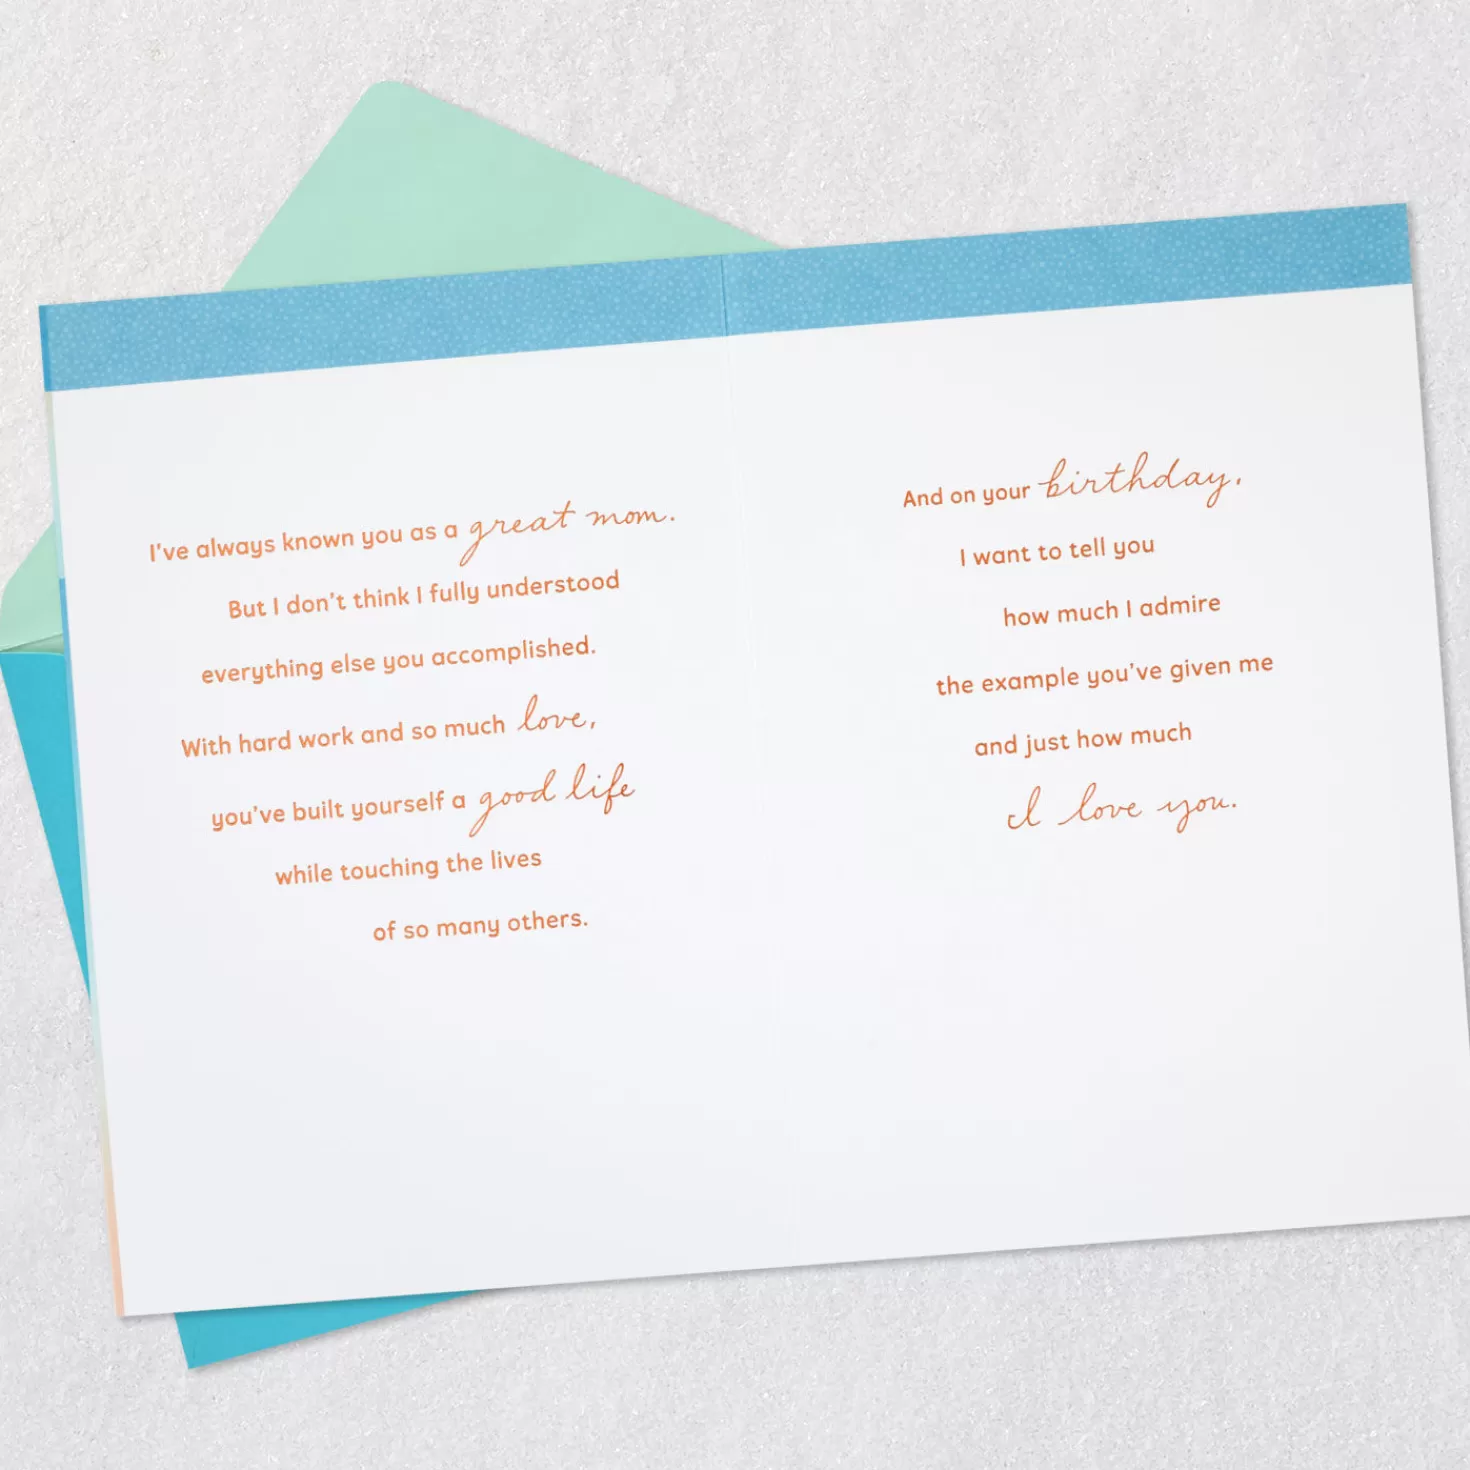 I've always known you as a great mom.
But I don't think I fully understood
everything else you accomplished.
With hard work and so much love,
you've built yourself a good life
while touching the lives
of so many others.
And on your birthday,
I want to tell you
how much I admire
the example you've given me
and just how much
I love you.